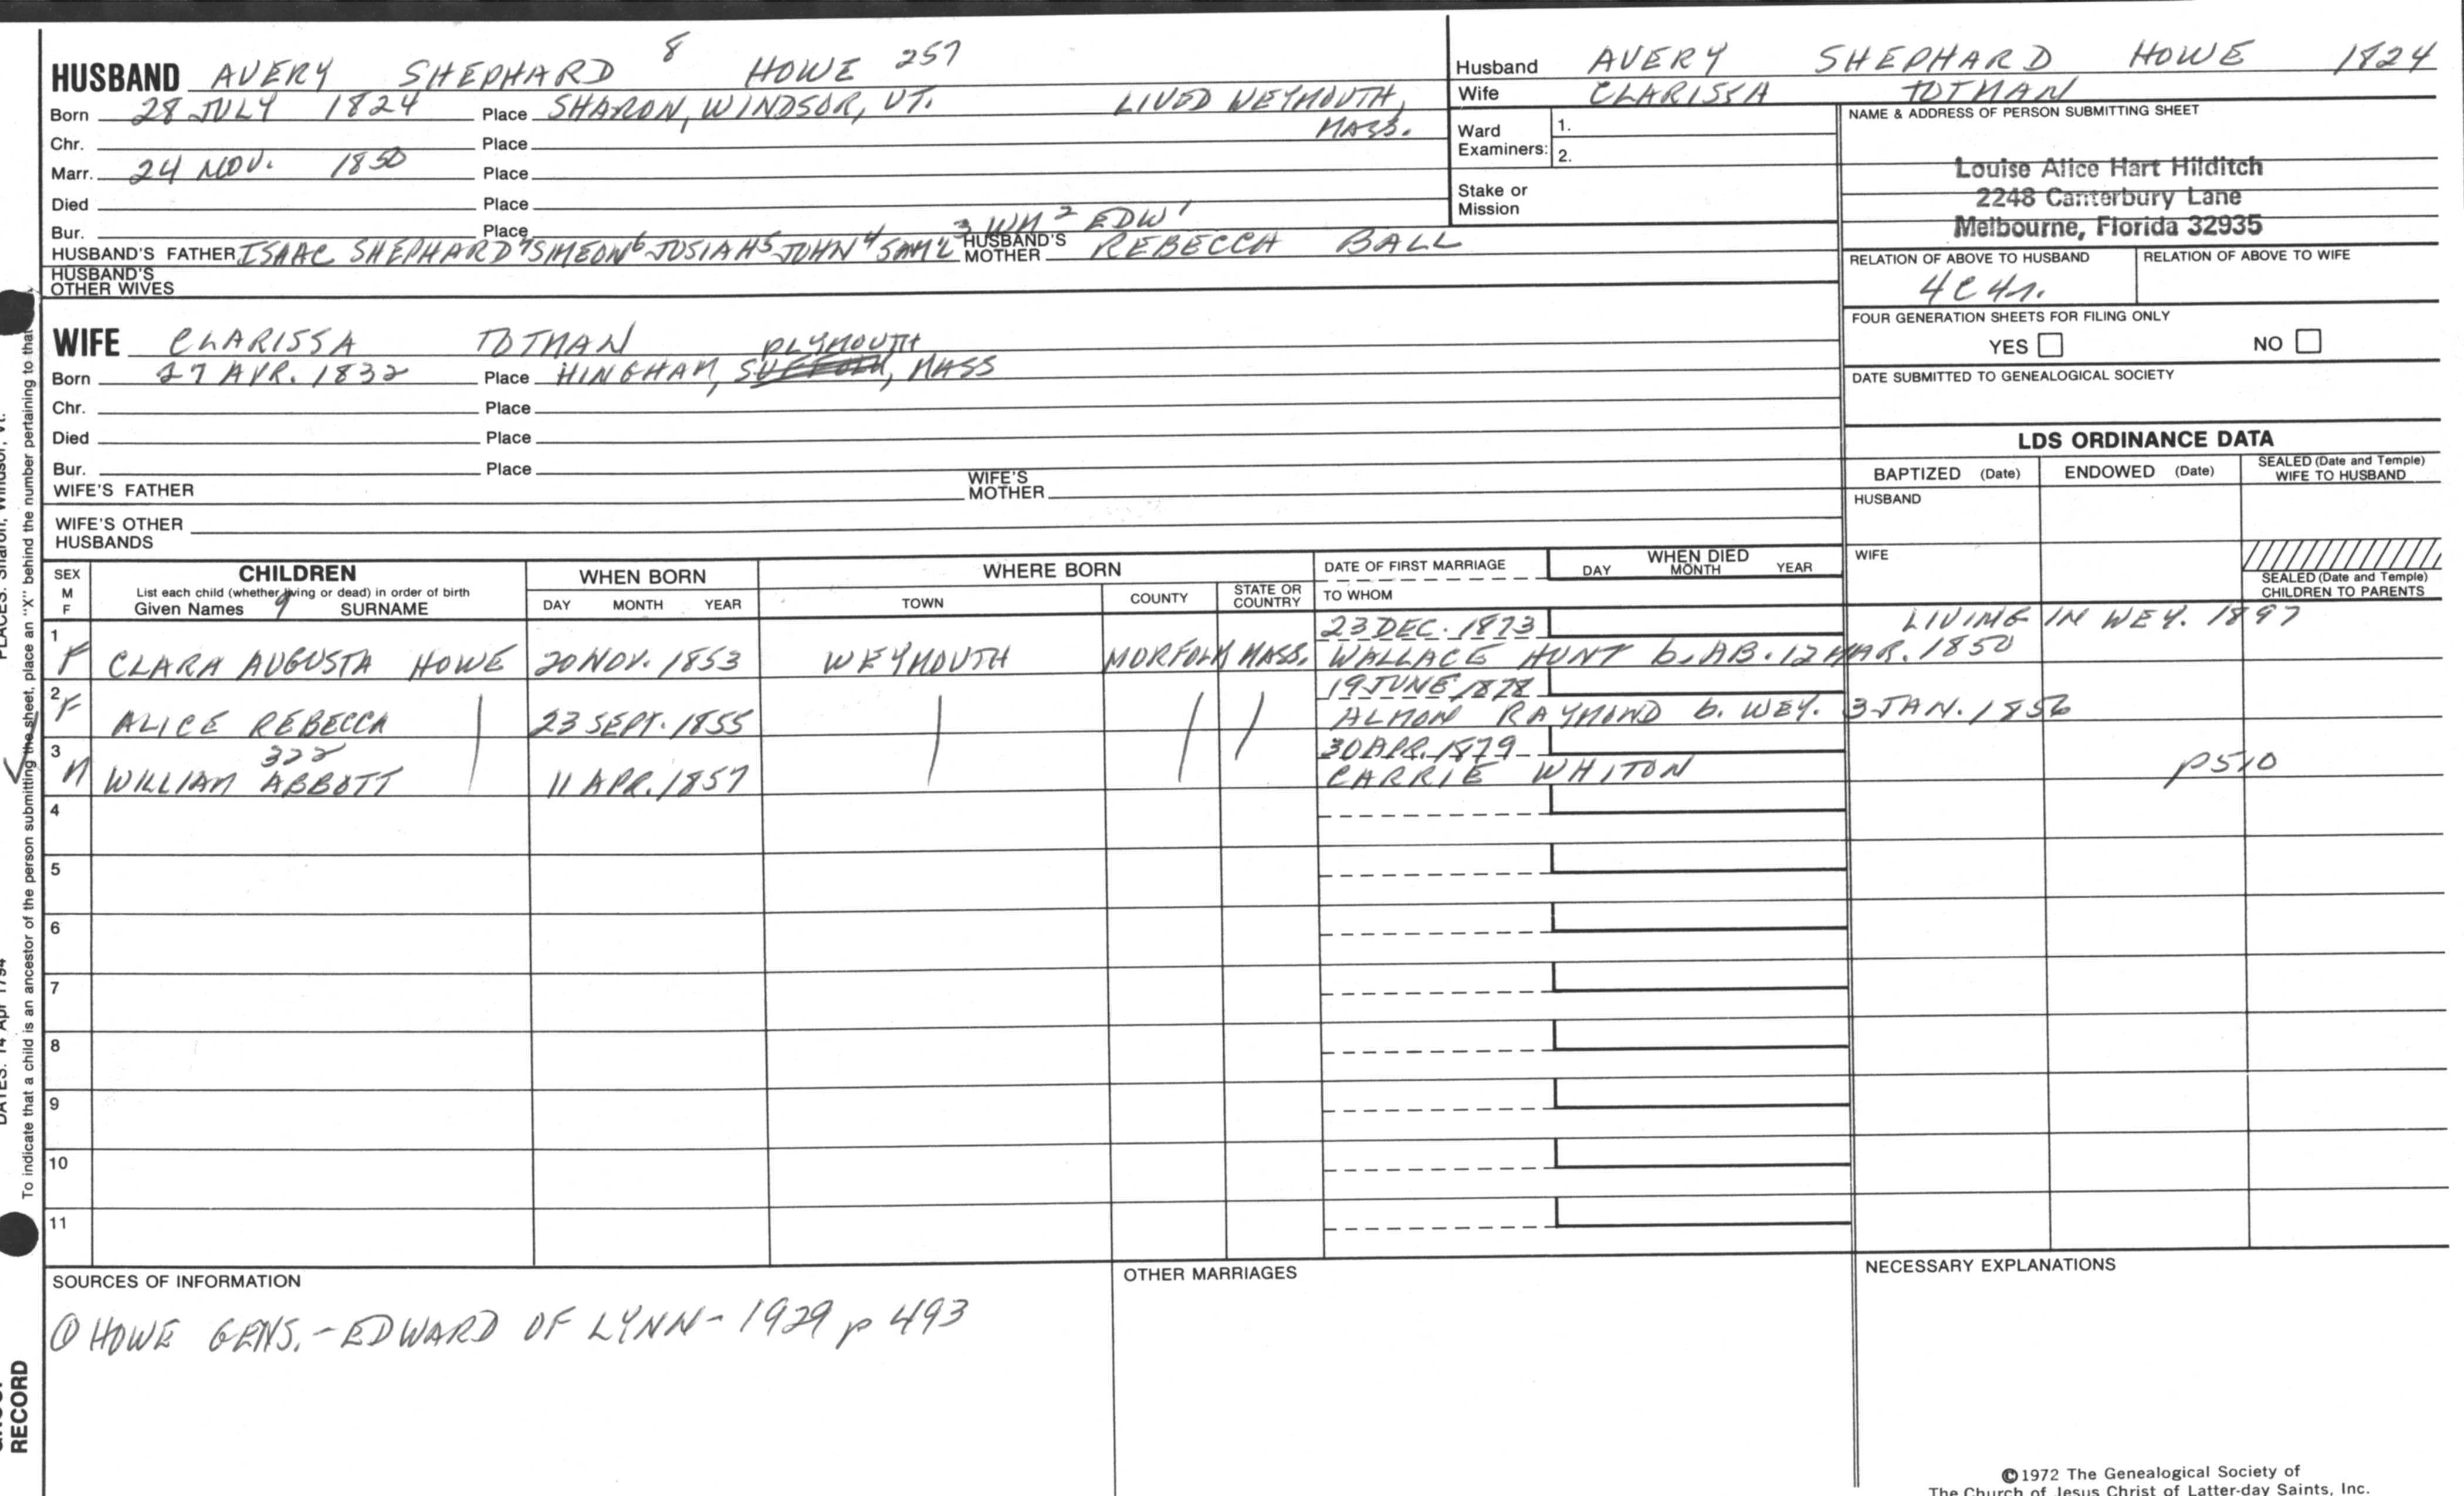 HUSBAND AVERY SHEPHARD 8 HOWE 257
Born 28 JULY 1824 Place SHARON, WINDSOR, VT. LIVED WEYMOUTH, MASS.
Chr. Place
Marr. 24 NOV. 1850 Place
Died Place
Bur. Place
HUSBAND'S FATHER ISAAC SHEPHARD 7 SIMEON 6 JOSIAH 5 JOHN 4 SAM'L 3 WM 2 EDW 1 HUSBAND'S MOTHER REBECCA BALL
HUSBAND'S OTHER WIVES
Husband AVERY SHEPHARD HOWE 1824
Wife CLARISSA TOTMAN
Ward Examiners: 1.
2.
Stake or Mission
NAME & ADDRESS OF PERSON SUBMITTING SHEET
Louise Alice Hart Hilditch
2248 Canterbury Lane
Melbourne, Florida 32935
RELATION OF ABOVE TO HUSBAND RELATION OF ABOVE TO WIFE
4C4r.
FOUR GENERATION SHEETS FOR FILING ONLY
YES NO
DATE SUBMITTED TO GENEALOGICAL SOCIETY
WIFE CLARISSA TOTMAN
Born 27 APR. 1832 Place HINGHAM, PLYMOUTH, MASS
Chr. Place
Died Place
Bur. Place
WIFE'S FATHER WIFE'S MOTHER
WIFE'S OTHER HUSBANDS
LDS ORDINANCE DATA
BAPTIZED (Date) ENDOWED (Date) SEALED (Date and Temple) WIFE TO HUSBAND
HUSBAND
WIFE
SEALED (Date and Temple) CHILDREN TO PARENTS
SEX M F CHILDREN WHEN BORN WHERE BORN DATE OF FIRST MARRIAGE WHEN DIED
List each child (whether living or dead) in order of birth
Given Names 9 SURNAME DAY MONTH YEAR TOWN COUNTY STATE OR COUNTRY TO WHOM DAY MONTH YEAR
1 23 DEC. 1873 LIVING IN WEY. 1897
F CLARA AUGUSTA HOWE 20 NOV. 1853 WEYMOUTH NORFOLK MASS. WALLACE HUNT b. AB. 12 MAR. 1850
2 19 JUNE 1878
F ALICE REBECCA 23 SEPT. 1855 ALMON RAYMOND b. WEY. 3 JAN. 1856
3 322 30 APR. 1879
M WILLIAM ABBOTT 11 APR. 1857 CARRIE WHITON p510
4
5
6
7
8
9
10
11
SOURCES OF INFORMATION
① HOWE GENS. - EDWARD OF LYNN - 1929 p 493
OTHER MARRIAGES
NECESSARY EXPLANATIONS
©1972 The Genealogical Society of
The Church of Jesus Christ of Latter-day Saints, Inc.
To indicate that a child is an ancestor of the person submitting the sheet, place an "X" behind the number pertaining to that
RECORD